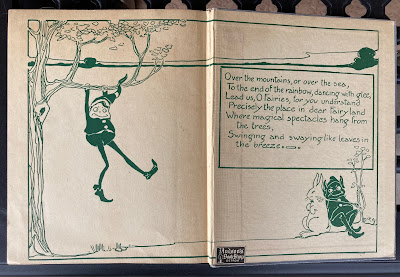 Over the mountains, or over the sea,
To the end of the rainbow, dancing with glee,
Lead us, O Fairies, for you understand
Precisely the place in dear Fairyland
Where magical spectacles hang from
the trees,
Swinging and swaying like leaves in
the breeze.
Book Shop